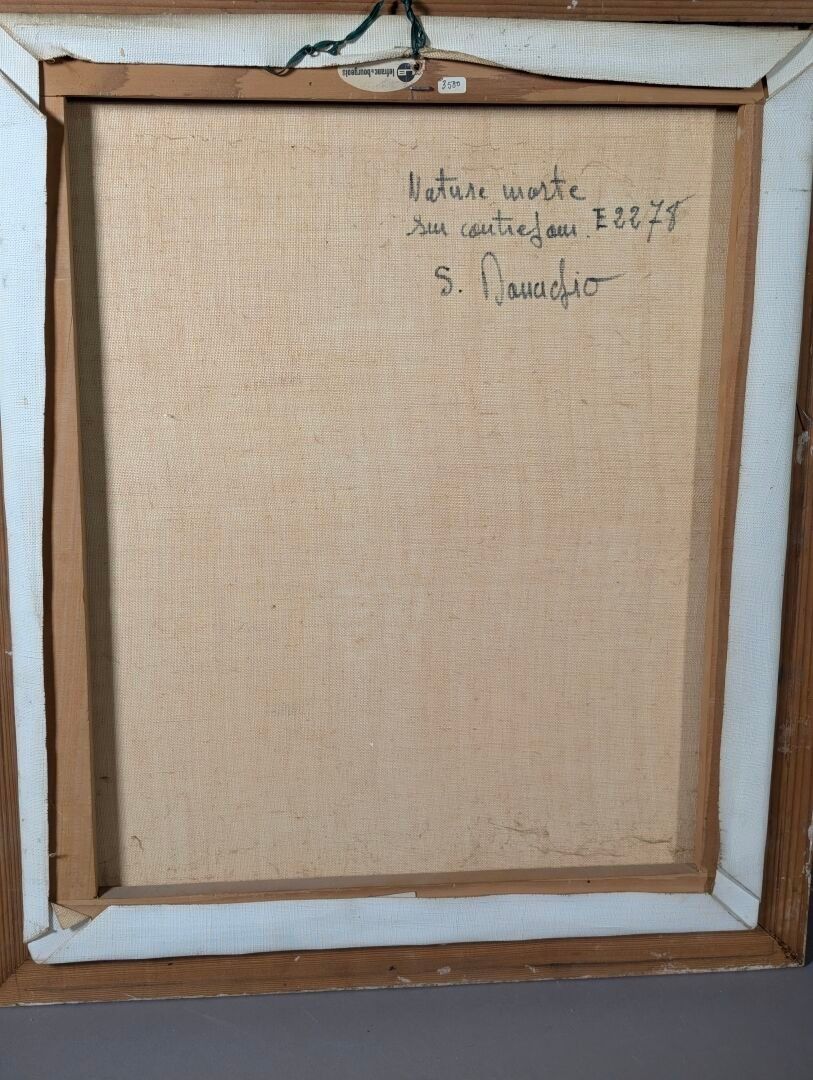 lefranc & bourgeois
3580
Nature morte
sur contrejour. E 2278
S.